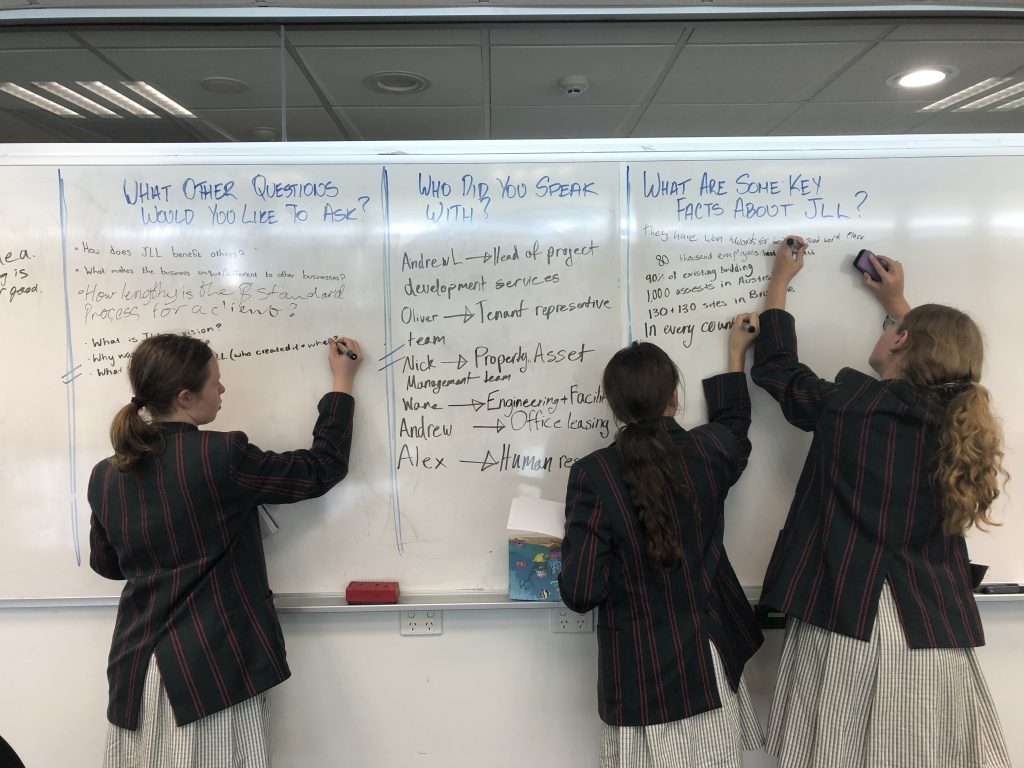 ea.
g is
r good.
WHAT OTHER QUESTIONS
WOULD YOU LIKE TO ASK?
• How does JLL benefit others?
• What makes the business different to other businesses?
• How lengthy is the standard
Process for a client?
• What is
• Why
LL (who created it +
• What
WHO DID YOU SPEAK
WITH?
Andrew L → Head of project
development services
Oliver → Tenant representive
team
Nick → Property Asset
Management team
Wane → Engineering + Facilit
Andrew → Office leasing
Alex → Human res
WHAT ARE SOME KEY
FACTS ABOUT JLL?
They have won awards work place
80 thousand employees
90% of existing building
1,000 assests in Austra
130 + 130 sites in Br
In every count